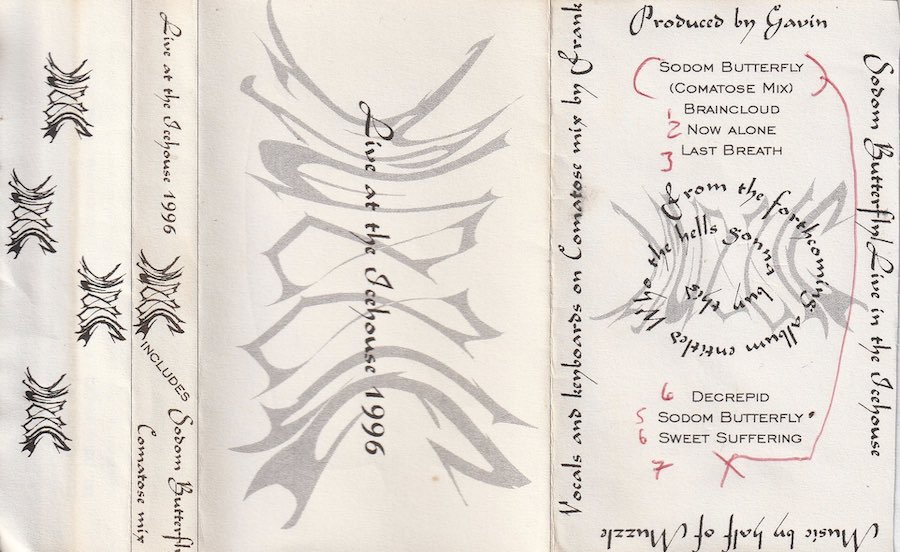 Live at the Icehouse 1996
INCLUDES
Sodom Butterfly
Comatose mix
Live at the Icehouse 1996
Vocals and keyboards on Comatose mix by Frank
Produced by Gavin
Sodom Butterfly
(Comatose Mix)
1 Braincloud
2 Now alone
3 Last Breath
From the forthcoming album entitles
Who the hells gonna bun this
6 Decrepid
5 Sodom Butterfly
6 Sweet Suffering
7 X
Sodom Butterfly/Live in the Icehouse
Music by half of Muzzle